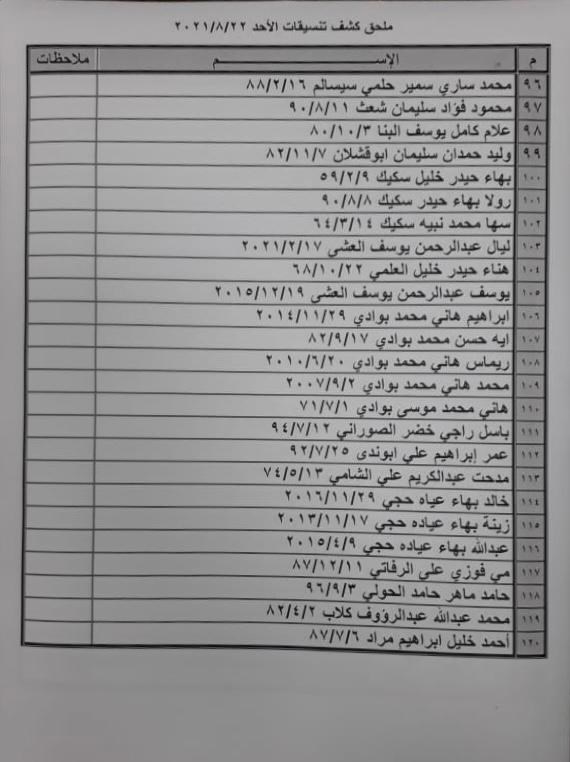 ملحق كشف تنسيقات الأحد ٢٠٢١/٨/٢٢
م الإســــــــم ملاحظات
٩٦ محمد ساري سمير حلمي سيسالم ٨٨/٢/١٦
٩٧ محمود فؤاد سليمان شعث ٩٠/٨/١١
٩٨ علام كامل يوسف البنا ٨٠/١٠/٣
٩٩ وليد حمدان سليمان ابوقشلان ٨٢/١١/٧
١٠٠ بهاء حيدر خليل سكيك ٥٩/٢/٩
١٠١ رولا بهاء حيدر سكيك ٩٠/٨/٨
١٠٢ سها محمد نبيه سكيك ٦٤/٣/١٤
١٠٣ ليال عبدالرحمن يوسف العشي ٢٠٢١/٢/١٧
١٠٤ هناء حيدر خليل العلمي ٦٨/١٠/٢٢
١٠٥ يوسف عبدالرحمن يوسف العشي ٢٠١٥/١٢/١٩
١٠٦ ابراهيم هاني محمد بوادي ٢٠١٤/١١/٢٩
١٠٧ ايه حسن محمد بوادي ٨٢/٩/١٧
١٠٨ ريماس هاني محمد بوادي ٢٠١٠/٦/٢٠
١٠٩ محمد هاني محمد بوادي ٢٠٠٧/٩/٢
١١٠ هاني محمد موسى بوادي ٧١/٧/١
١١١ باسل راجي خضر الصوراني ٩٤/٧/١٢
١١٢ عمر إبراهيم علي ابوندى ٩٢/٧/٢٥
١١٣ مدحت عبدالكريم علي الشامي ٧٤/٥/١٣
١١٤ خالد بهاء عياه حجي ٢٠١٦/١١/٢٩
١١٥ زينة بهاء عياده حجي ٢٠١٣/١١/١٧
١١٦ عبدالله بهاء عياده حجي ٢٠١٥/٤/٩
١١٧ مي فوزي علي الرفاتي ٨٧/١٢/١١
١١٨ حامد ماهر حامد الحولي ٩٦/٩/٣
١١٩ محمد عبدالله عبدالرؤوف كلاب ٨٢/٤/٢
١٢٠ أحمد خليل ابراهيم مراد ٨٧/٧/٦